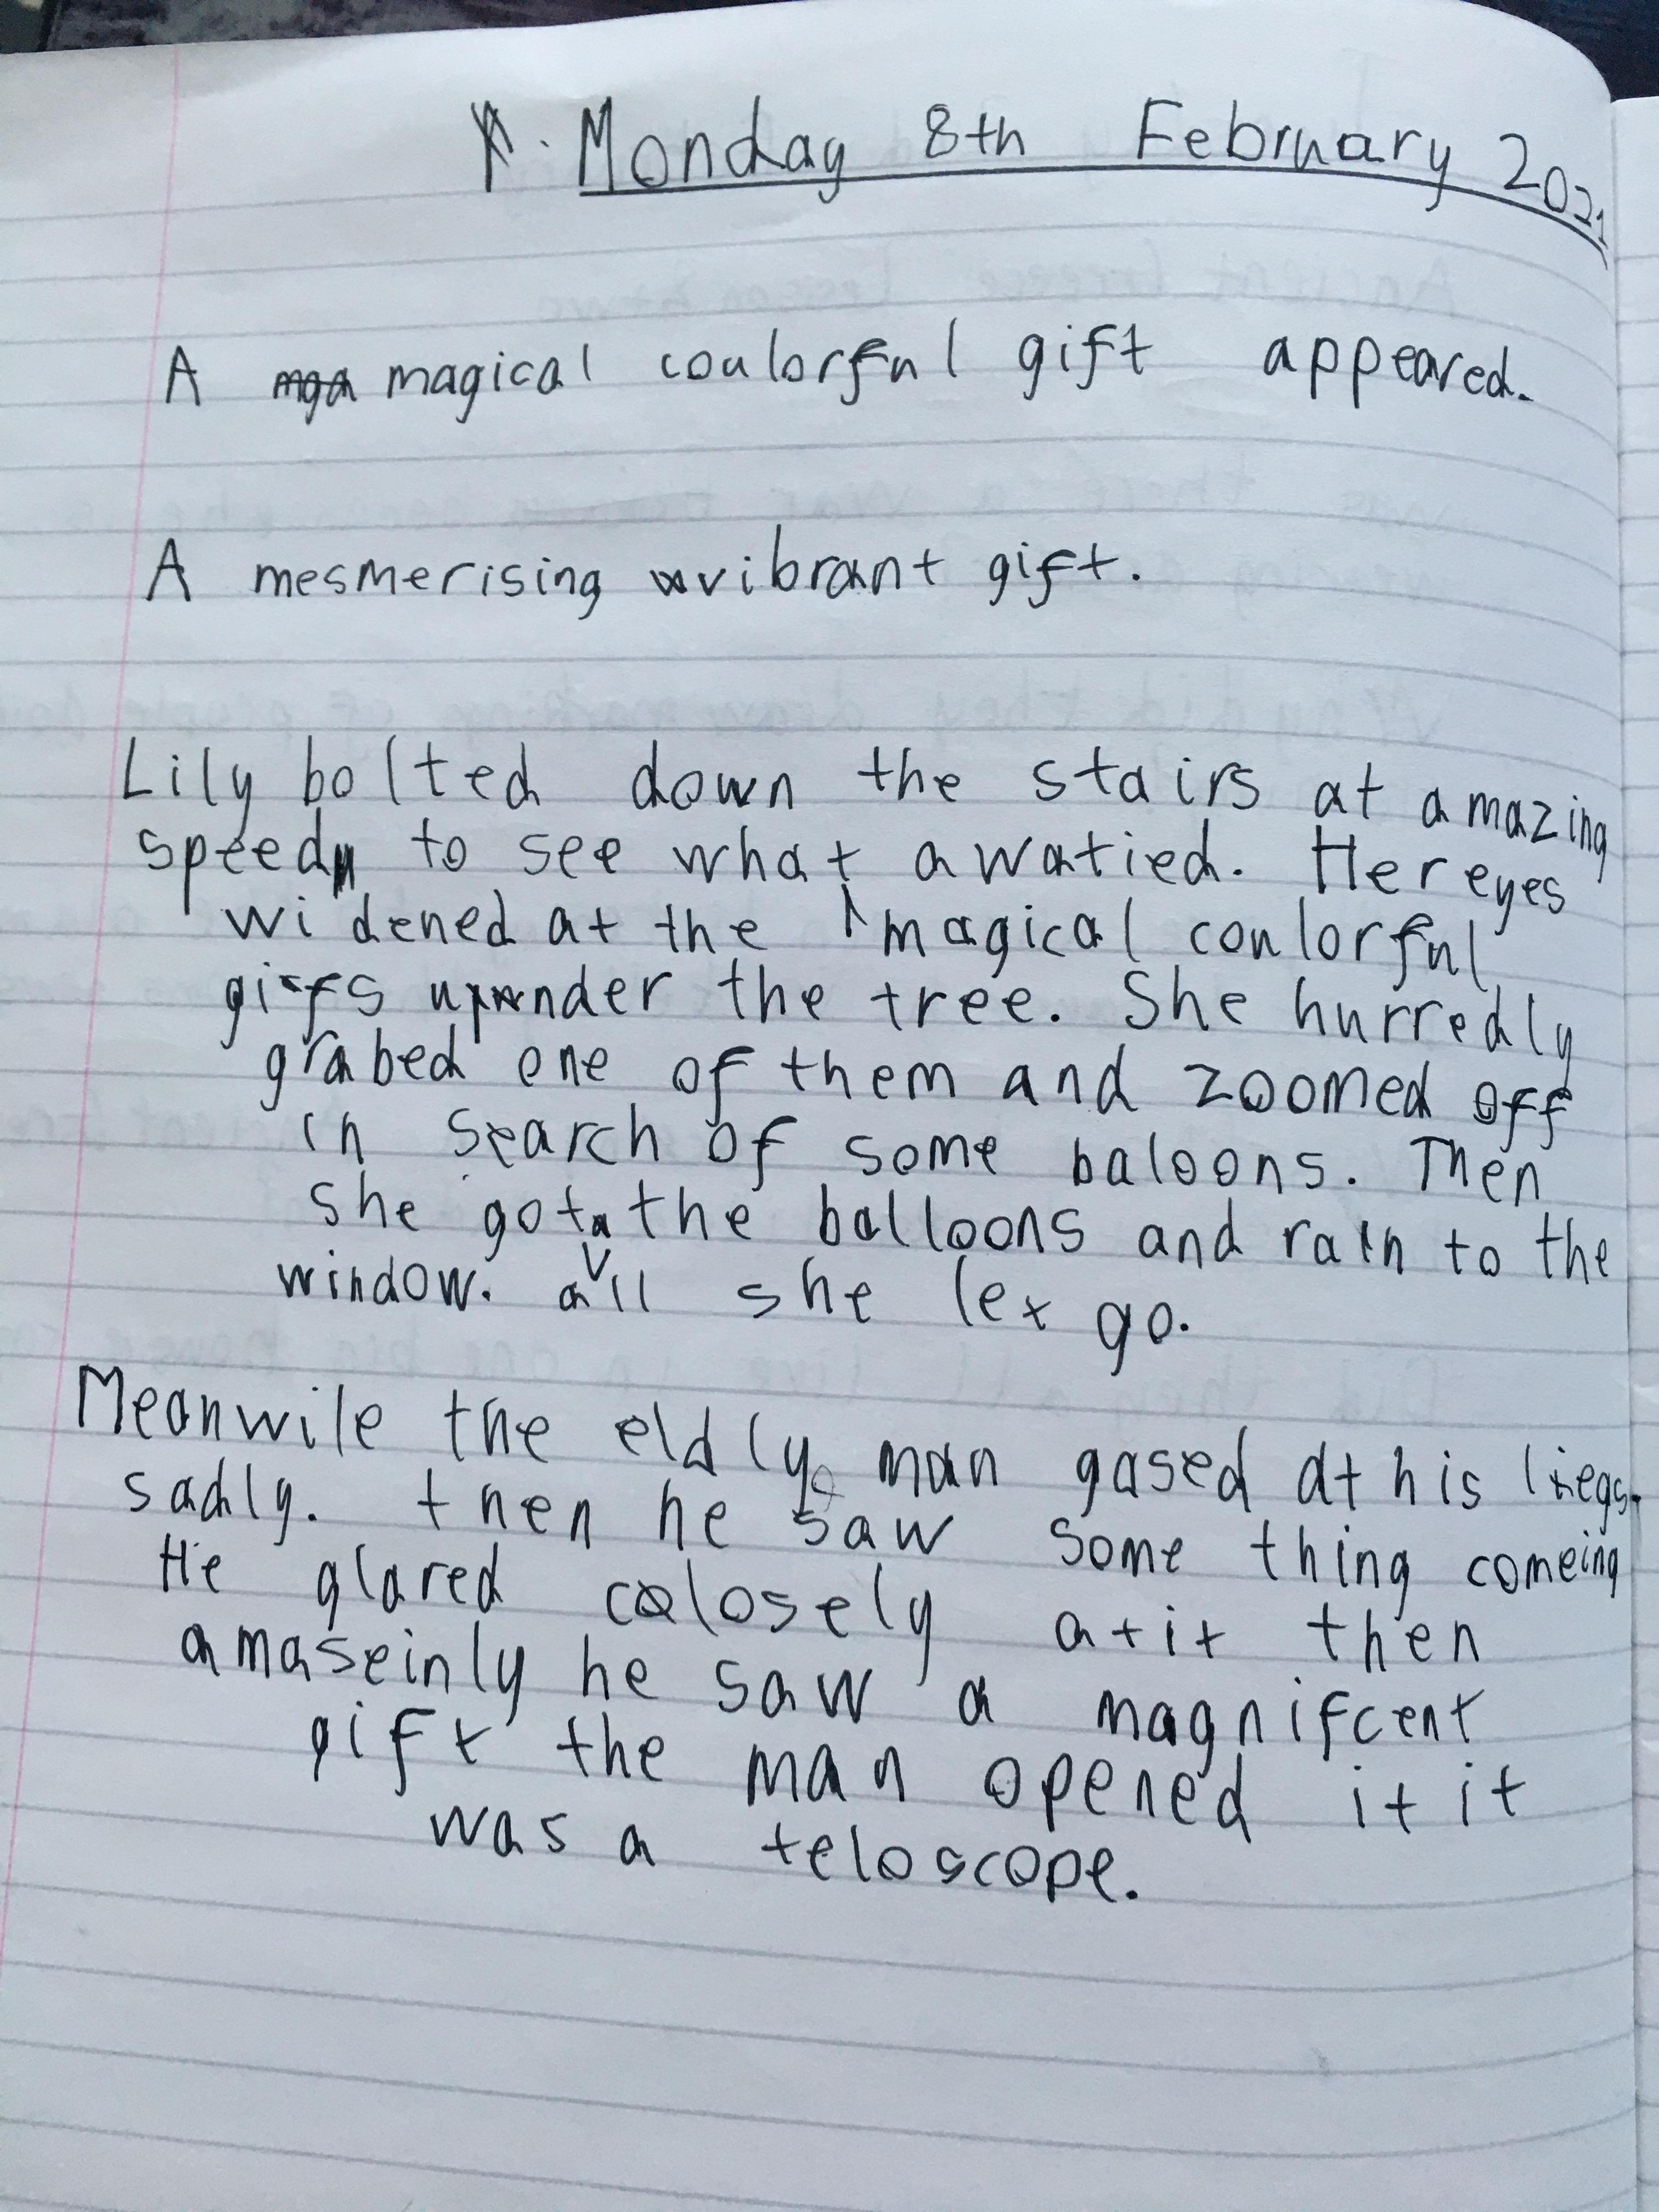 Monday 8th February 2021
A magical coulorful gift appeared.
A mesmerising vibrant gift.
Lily bolted down the stairs at amazing
speed to see what awatied. Her eyes
widened at the magical coulorful
gifs under the tree. She hurredly
grabed one of them and zoomed off
in search of some baloons. Then
she got the balloons and ran to the
window. all she let go.
Meanwile the eldly man gased at his legs.
sadly. then he saw some thing comeing
He glared closely at it then
amaseinly he saw a magnifcent
gift the man opened it it
was a teloscope.